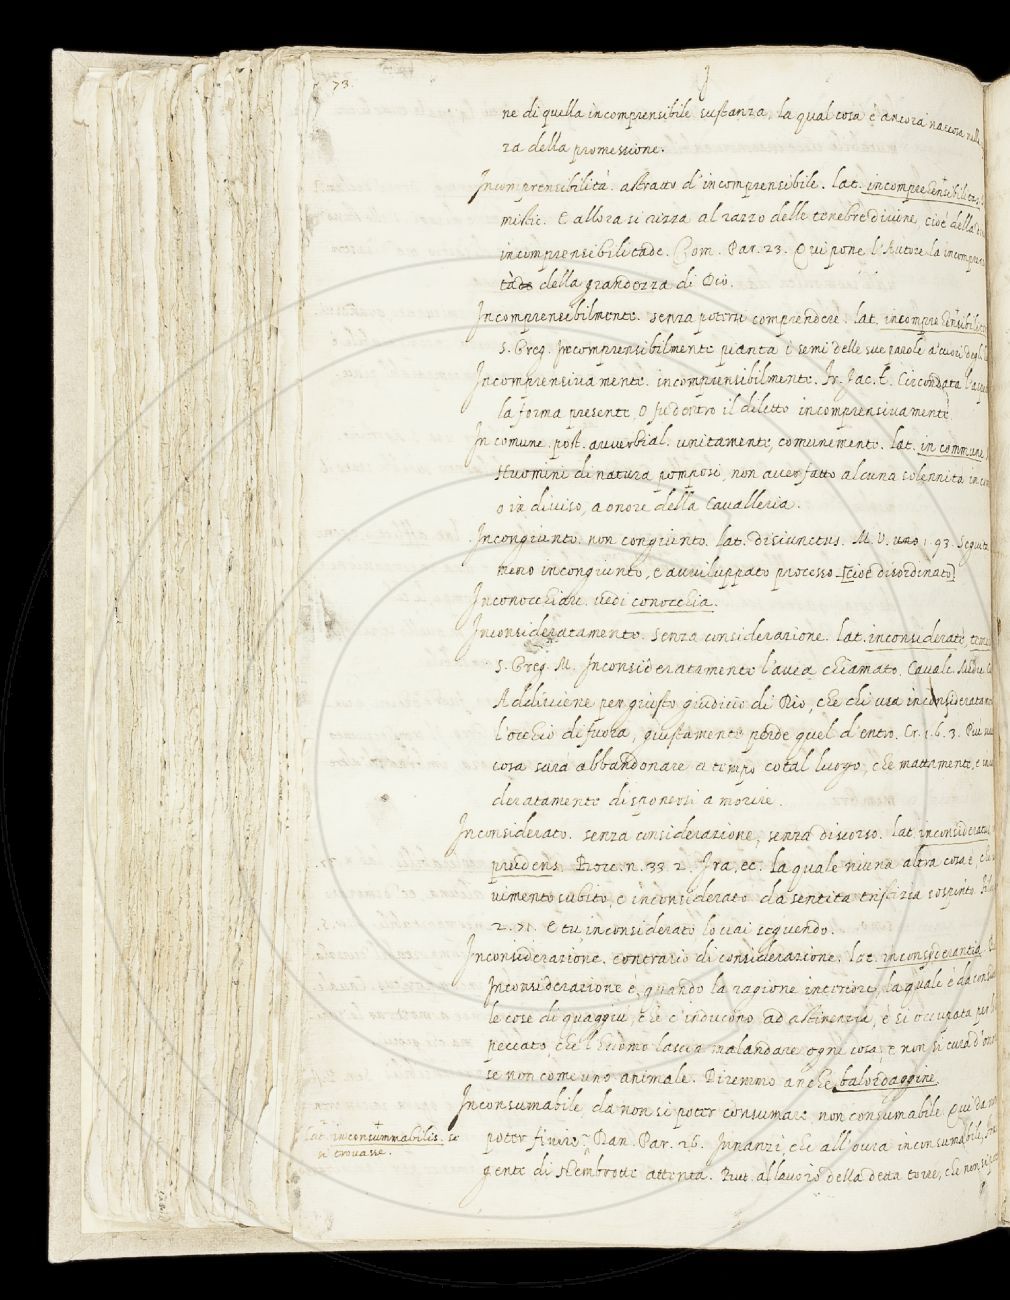 73.
J
ne di quella incomprensibile sustanza, la qual cosa è ancora nascosa nella
za della promessione.
Incomprensibilità. astratto d'incomprensibile. lat. incomprehensibilitas
mistic. E allora si rizza al razzo delle tenebre divine, cioè della
incomprensibilitade. Com. Par. 23. Qui pone l'Autore la incomprensi
tade della grandezza di Dio.
Incomprensibilmente. senza potersi comprendere. lat. incomprehensibiliter
S. Greg. Incomprensibilmente pianta i semi delle sue parole a' cuori degli
Incomprensivamente. incomprensibilmente. Fr. Jac. t. Circondata l'
la forma presente, O fu dentro il diletto incomprensivamente
In comune. post. avverbial. unitamente, comunemente. lat. in commune
Huomini di natura pomposi, non aver fatto alcuna solennità in com
o in diviso, a onore della Cavalleria.
Incongiunto. non congiunto. lat. disiunctus. M. V. 1. 93. Seguita
meno incongiunto, e avviluppato processo [cioè disordinato]
Inconocchiare. vedi conocchia.
Inconsideratamente. senza considerazione. lat. inconsiderate, teme
S. Greg. M. Inconsideratamente l'avea chiamato. Cavalc.
Addiviene per giusto giudicio di Dio, che chi usa inconsideratam
l'occhio di fuora, giustamente perde quel d'entro. Cr. 1. 6. 3. Più
cosa sarà abbandonare a tempo cotal luogo, che mattamente, e incon
deratamente disponersi a morire.
Inconsiderato. senza considerazione, senza discorso. lat. inconsideratus
prudens. Bocc. n. 33. 2. Ira, ec. la quale niuna altra cosa è, che
vimento subito, e inconsiderato da sentita tristizia sospinto.
2. 71. E tu inconsiderato lo vai seguendo.
Inconsiderazione. contrario di considerazione. lat. inconsyderantia
Inconsiderazione è, quando la ragione interiore, la quale è da
le cose di quaggiù, che c'inducono ad astinenzia, e si occupata per
peccato, che l'huomo lascia malandare ogni cosa, e non si cura d'
se non come uno animale. Diremmo anche balordaggine.
Inconsumabile, da non si poter consumare, non consumabile. Qui da non
poter finire. Dan. Par. 26. Innanzi, che all'ovra inconsumabile, Fosse
gente di Nembrotte attenta. But. al lavorio della detta torre, che non si pot
lat. inconsummabilis. se
si trovasse.